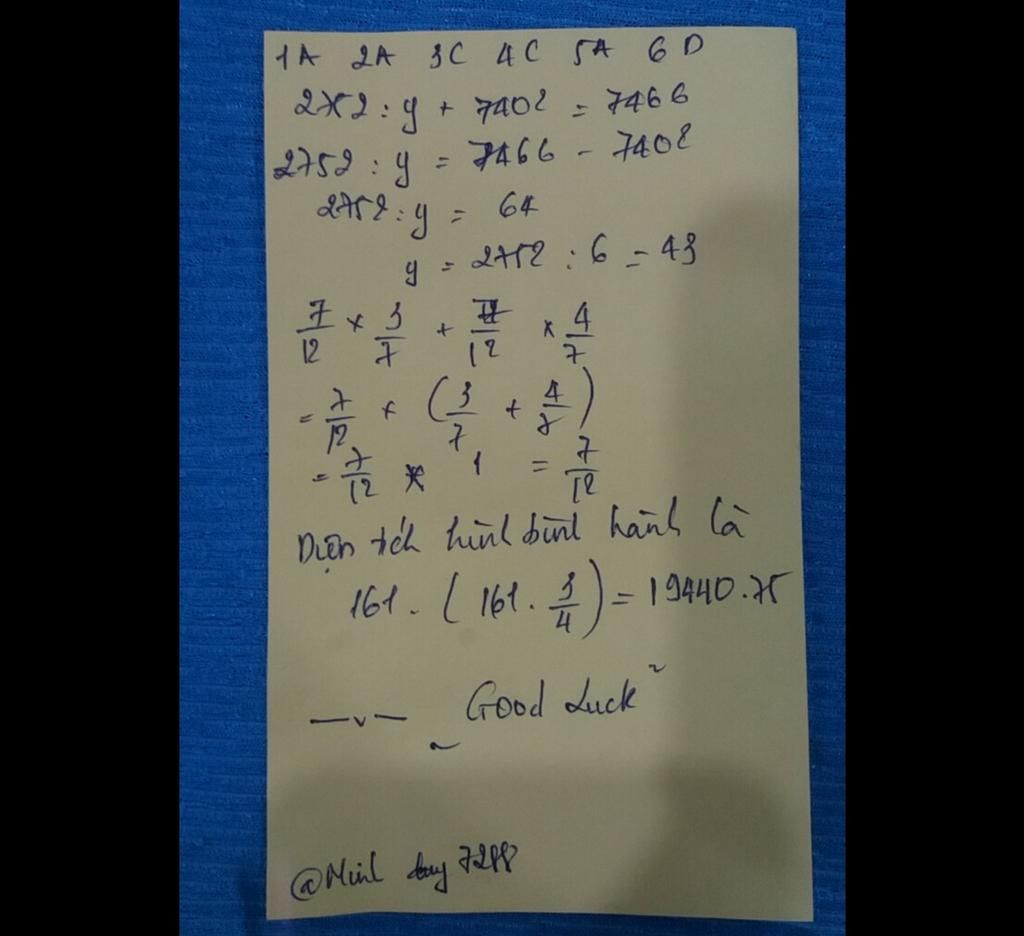 1A 2A 3C 4C 5A 6D
2752 : y + 7402 = 7466
2752 : y = 7466 - 7402
2752 : y = 64
y = 2752 : 6 = 43
7/12 × 3/7 + 7/12 × 4/7
= 7/12 × (3/7 + 4/7)
= 7/12 × 1 = 7/12
Diện tích hình bình hành là
161 . (161 . 3/4) = 19440.75
Good Luck
@Minh duy